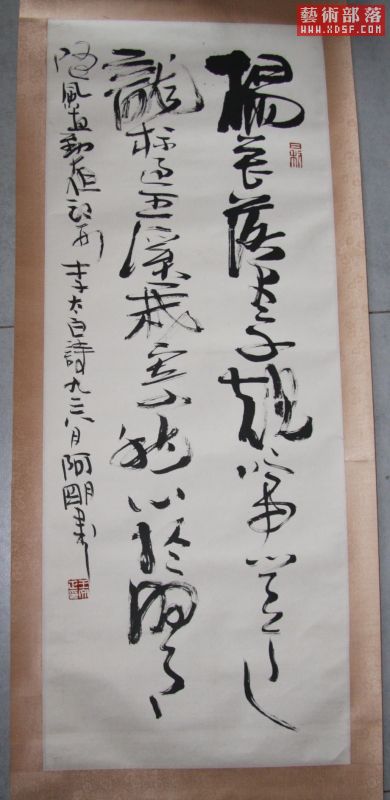 藝術部落
WWW.XDSF.COM
楊花落盡子規啼聞道
龍標過五溪我寄愁心於明月
隨風直到夜郎西 李太白詩九三八月阿